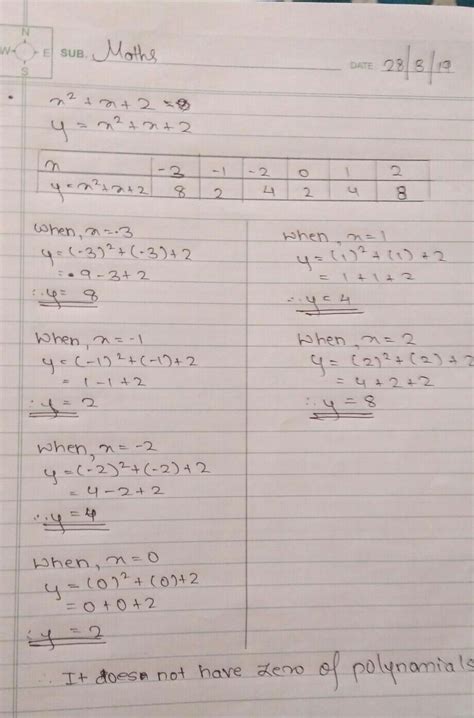 N
W E SUB. Maths
S DATE 28/8/19
x² + x + 2 = 0
y = x² + x + 2
x -3 -1 -2 0 1 2
y=x²+x+2 8 2 4 2 4 8
when, x=-3
y=(-3)²+(-3)+2
= 9-3+2
∴ y= 8
when, x=-1
y=(-1)²+(-1)+2
= 1-1+2
∴ y = 2
when, x=-2
y=(-2)²+(-2)+2
= 4-2+2
∴ y=4
when, x=0
y=(0)²+(0)+2
= 0+0+2
∴ y = 2
when, x=1
y=(1)²+(1)+2
= 1+1+2
∴ y=4
when, x=2
y=(2)²+(2)+2
= 4+2+2
∴ y=8
∴ It does not have zero of polynomials